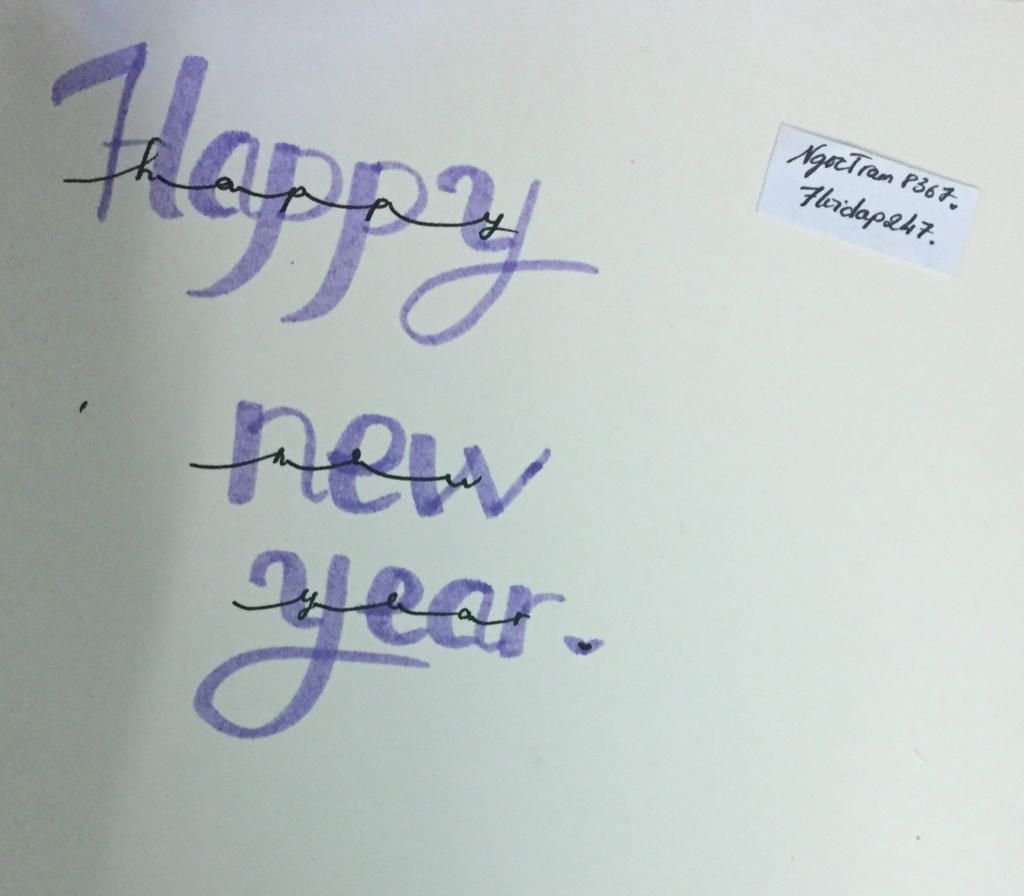 Happy
happy
new
new
year.
year
NgocTram P367.
7hidap247.